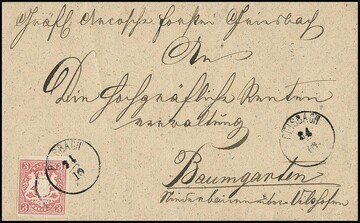 Gräfl. Arcosche Forstei Griesbach
An
Die hochgräfliche Renten
verwaltung
Baumgarten
Niederbaiern über Vilshofen
REISBACH
24
10
3